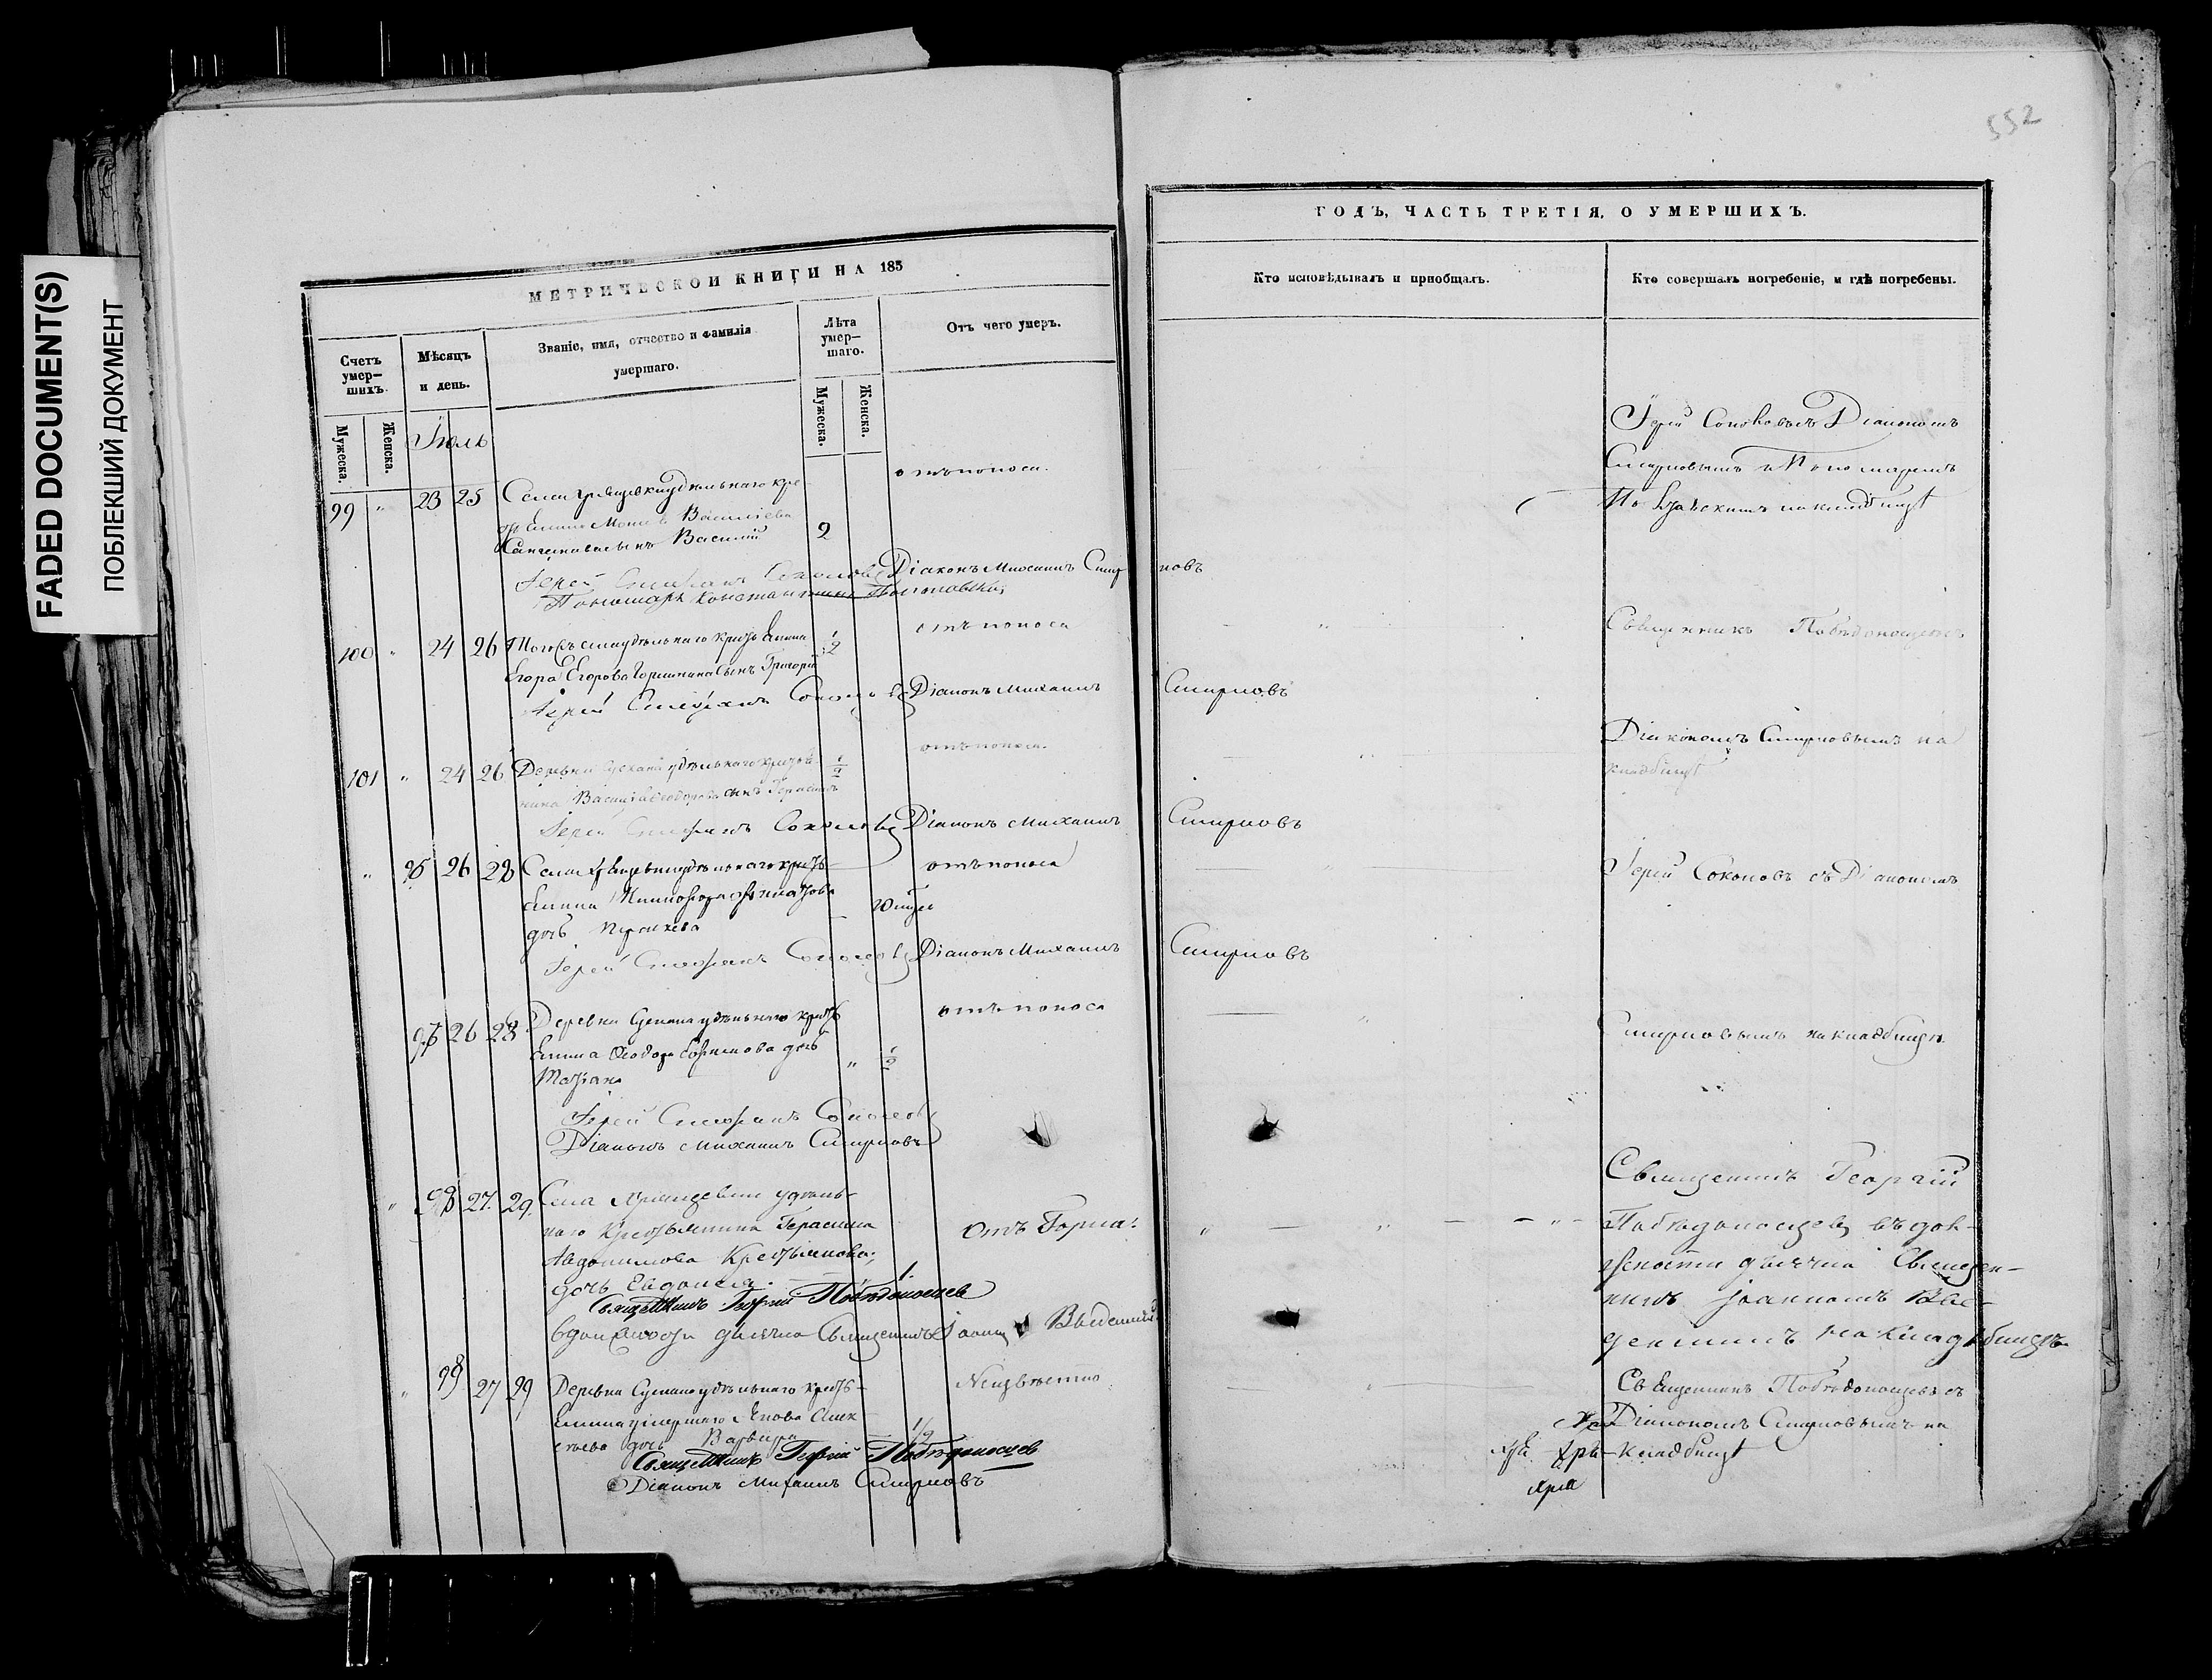 FADED DOCUMENT(S)
ПОБЛЕКШИЙ ДОКУМЕНТ
МЕТРИЧЕСКОЙ КНИГИ НА 185
Счетъ умер-шихъ.
Мѣсяцъ и день.
Званіе, имя, отчество и фамилія умершаго.
Лѣта умер-шаго.
Отъ чего умеръ.
Мужеска.
Женска.
Мужеска.
Женска.
Іюль
99 " 23 25 Села удѣльнаго кре
Василіева
сынъ Василій 2
отъ поноса.
Іерей Стефанъ Соколовъ Діаконъ Михаилъ Смирновъ
Пономарь Константинъ
100 " 24 26 Тогожъ села удѣльнаго кресть янина 1/2
Егора Егорова сынъ Григорій
отъ поноса
Іерей Стефанъ Соколовъ Діаконъ Михаилъ Смирновъ
101 " 24 26 Деревни удѣльнаго крестья 1/2
нина Василія Ѳеодорова сынъ Герасимъ
отъ поноса.
Іерей Стефанъ Соколовъ Діаконъ Михаилъ Смирновъ
" 96 26 28 Села удѣльнаго кресть
янина
дочь
отъ поноса
Іерей Стефанъ Соколовъ Діаконъ Михаилъ Смирновъ
97 26 28 Деревни удѣльнаго кресть
янина Ѳеодора дочь " 1/2
Татіана
отъ поноса
Іерей Стефанъ Соколовъ
Діаконъ Михаилъ Смирновъ
" 98 27. 29. Села удѣль-
наго Крестьянина Герасима
дочь Евдокія. 1.
отъ Горла.
Священникъ Георгій Побѣдоносцев
в должности дьячка Священникъ Іоаннъ Введенскій
" 99 27 29 Деревни удѣльнаго кресть-
янина умершаго Якова Алек
сѣева дочь Варвара 1/2
Неизвѣстно
Священникъ Георгій Побѣдоносцев
Діаконъ Михаилъ Смирновъ
552
ГОДЪ, ЧАСТЬ ТРЕТІЯ, О УМЕРШИХЪ.
Кто исповѣдывалъ и пріобщалъ.
Кто совершалъ погребеніе, и гдѣ погребены.
Іерей Соколовъ съ Діакономъ
Смирновымъ и Пономаремъ
на кладбищѣ
Священникъ Побѣдоносцевъ
Діакономъ Смирновымъ на
кладбищѣ
Іерей Соколовъ съ Діакономъ
Смирновымъ на кладбищѣ.
Священникъ Георгій
Побѣдоносцевъ въ дол-
жности дьячка Священ-
никъ Іоанномъ Вве-
денскимъ на кладбищѣ.
Священникъ Побѣдоносцевъ съ
Діакономъ Смирновымъ на
кладбищѣ